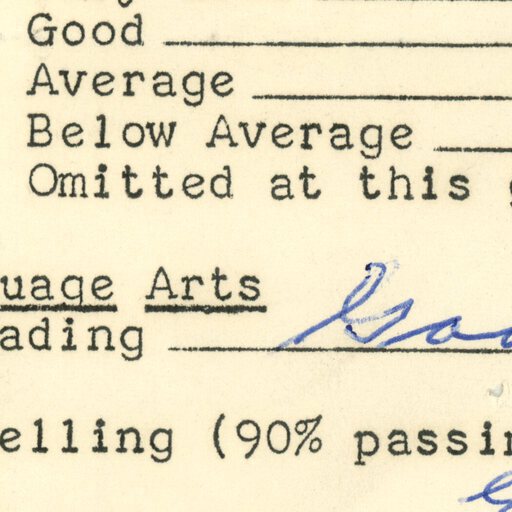 Good
Average
Below Average
Omitted at this
uage Arts
ading Goo
elling (90% passin